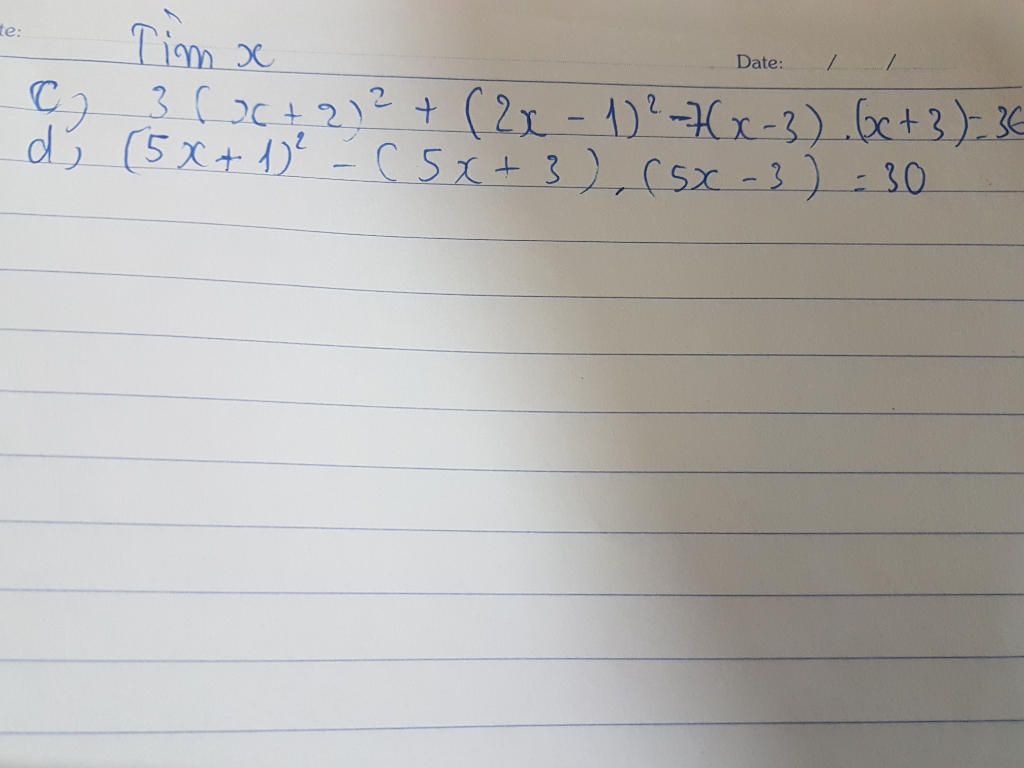 te:
Tìm x
Date: / /
c) 3(x+2)² + (2x-1)² -7(x-3).(x+3)=36
d) (5x+1)² - (5x+3).(5x-3) = 30